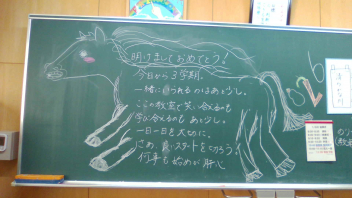 明けましておめでとう!
今日から3学期。
一緒に居られるのはあと少し。
この教室で笑い合えるのも
学び合えるのもあと少し。
一日一日を大切に。
さあ、良いスタートをきろう!
何事も始めが肝心